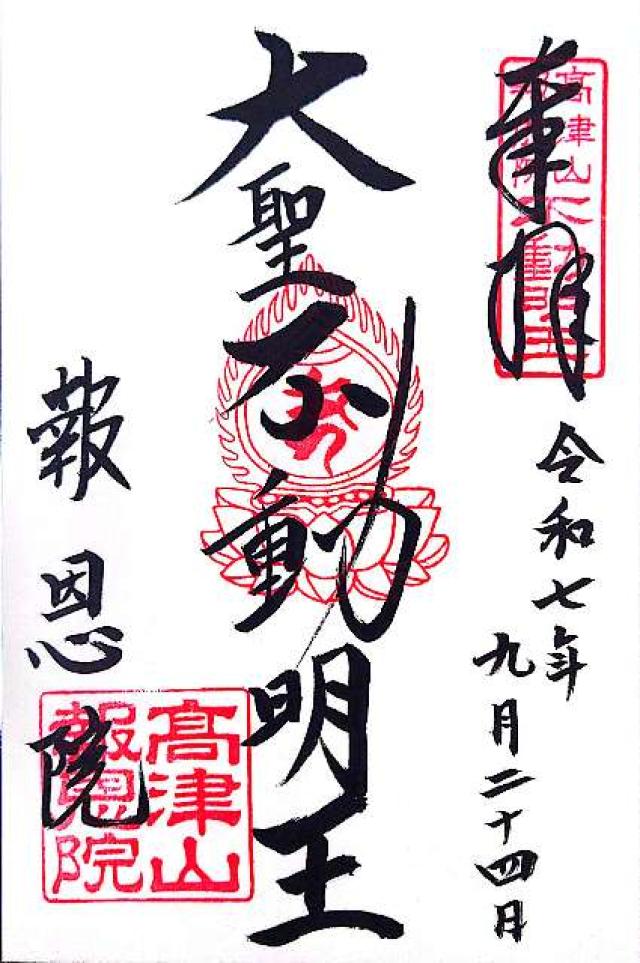 奉拝
高津山
報恩院
不動明王
令和七年
九月二十四日
大聖不動明王
報恩院
高津山
報恩院